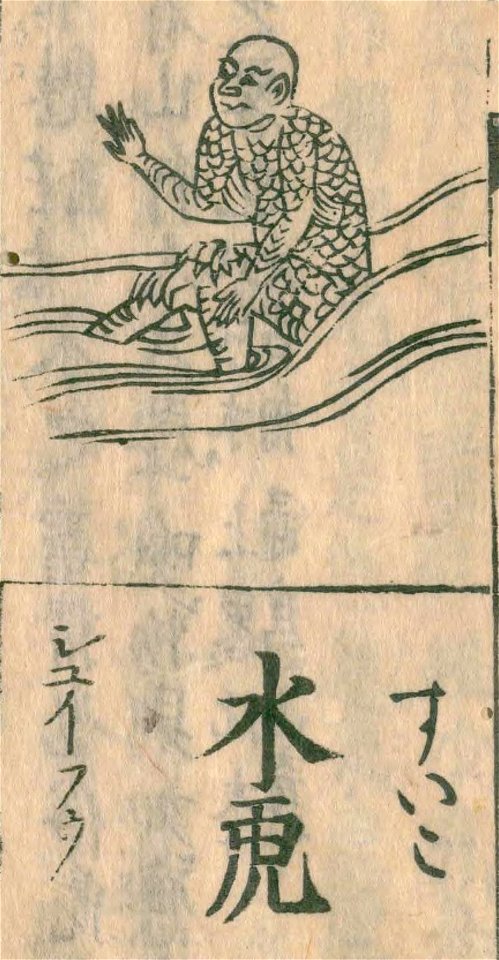 すいこ
水虎
シユイフウ